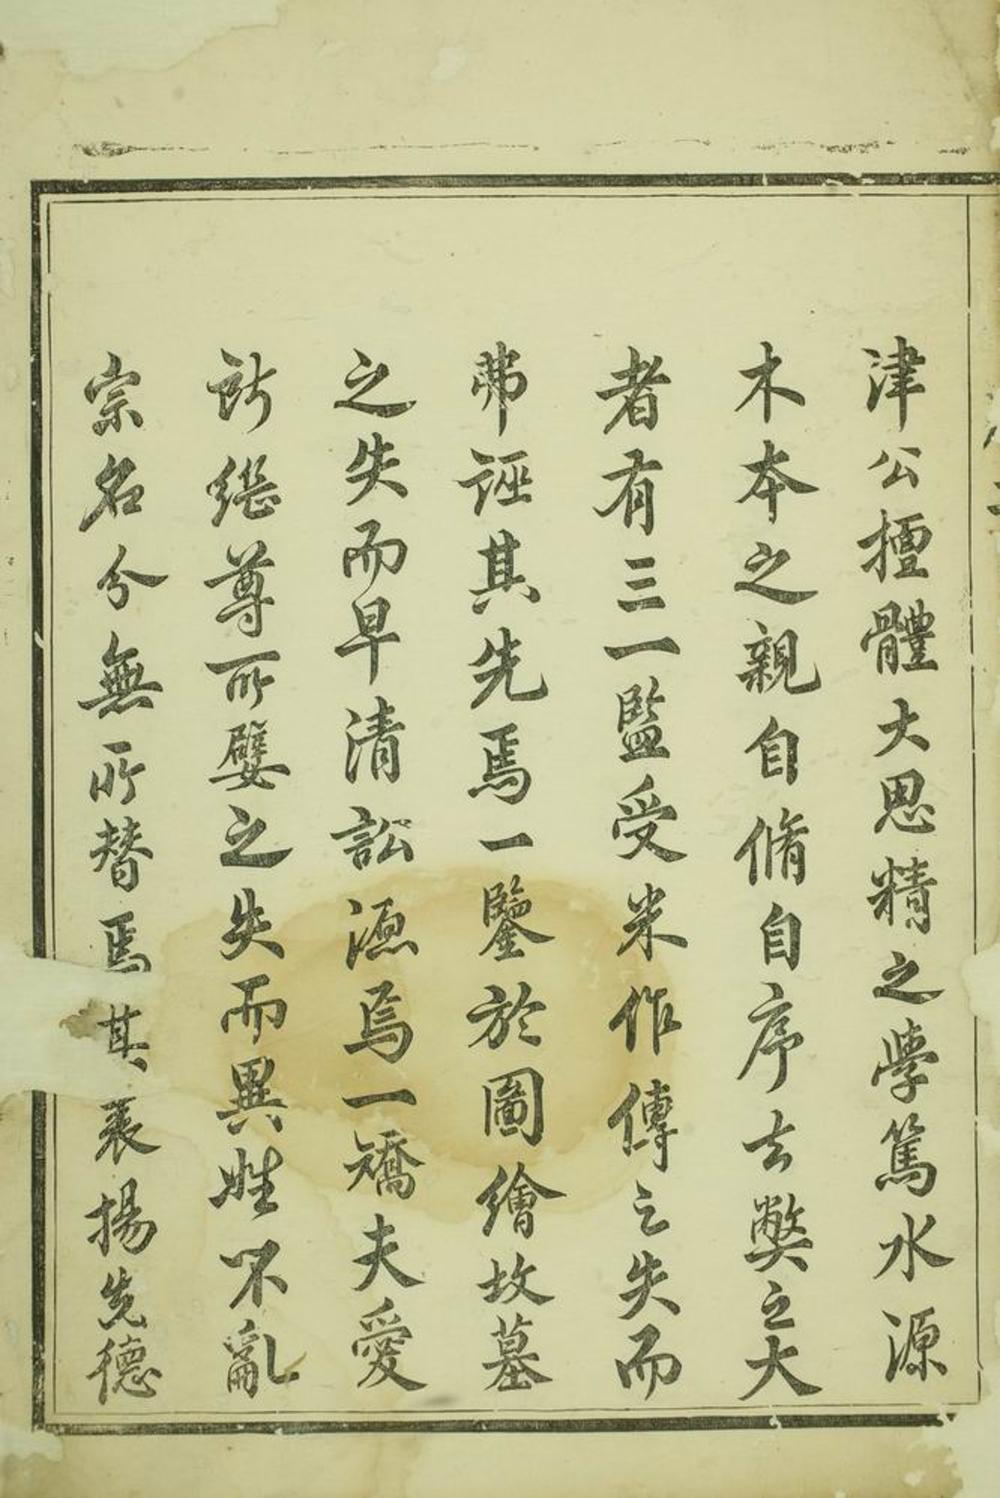 津公擅體大思精之學篤水源
木本之親自脩自序去弊之大
者有三一監受米作傳之失而
弗誣其先焉一鑒於圖繪坟墓
之失而早清訟源焉一矯夫愛
所繼尊所嬖之失而異姓不亂
宗名分無所替焉其表揚先德